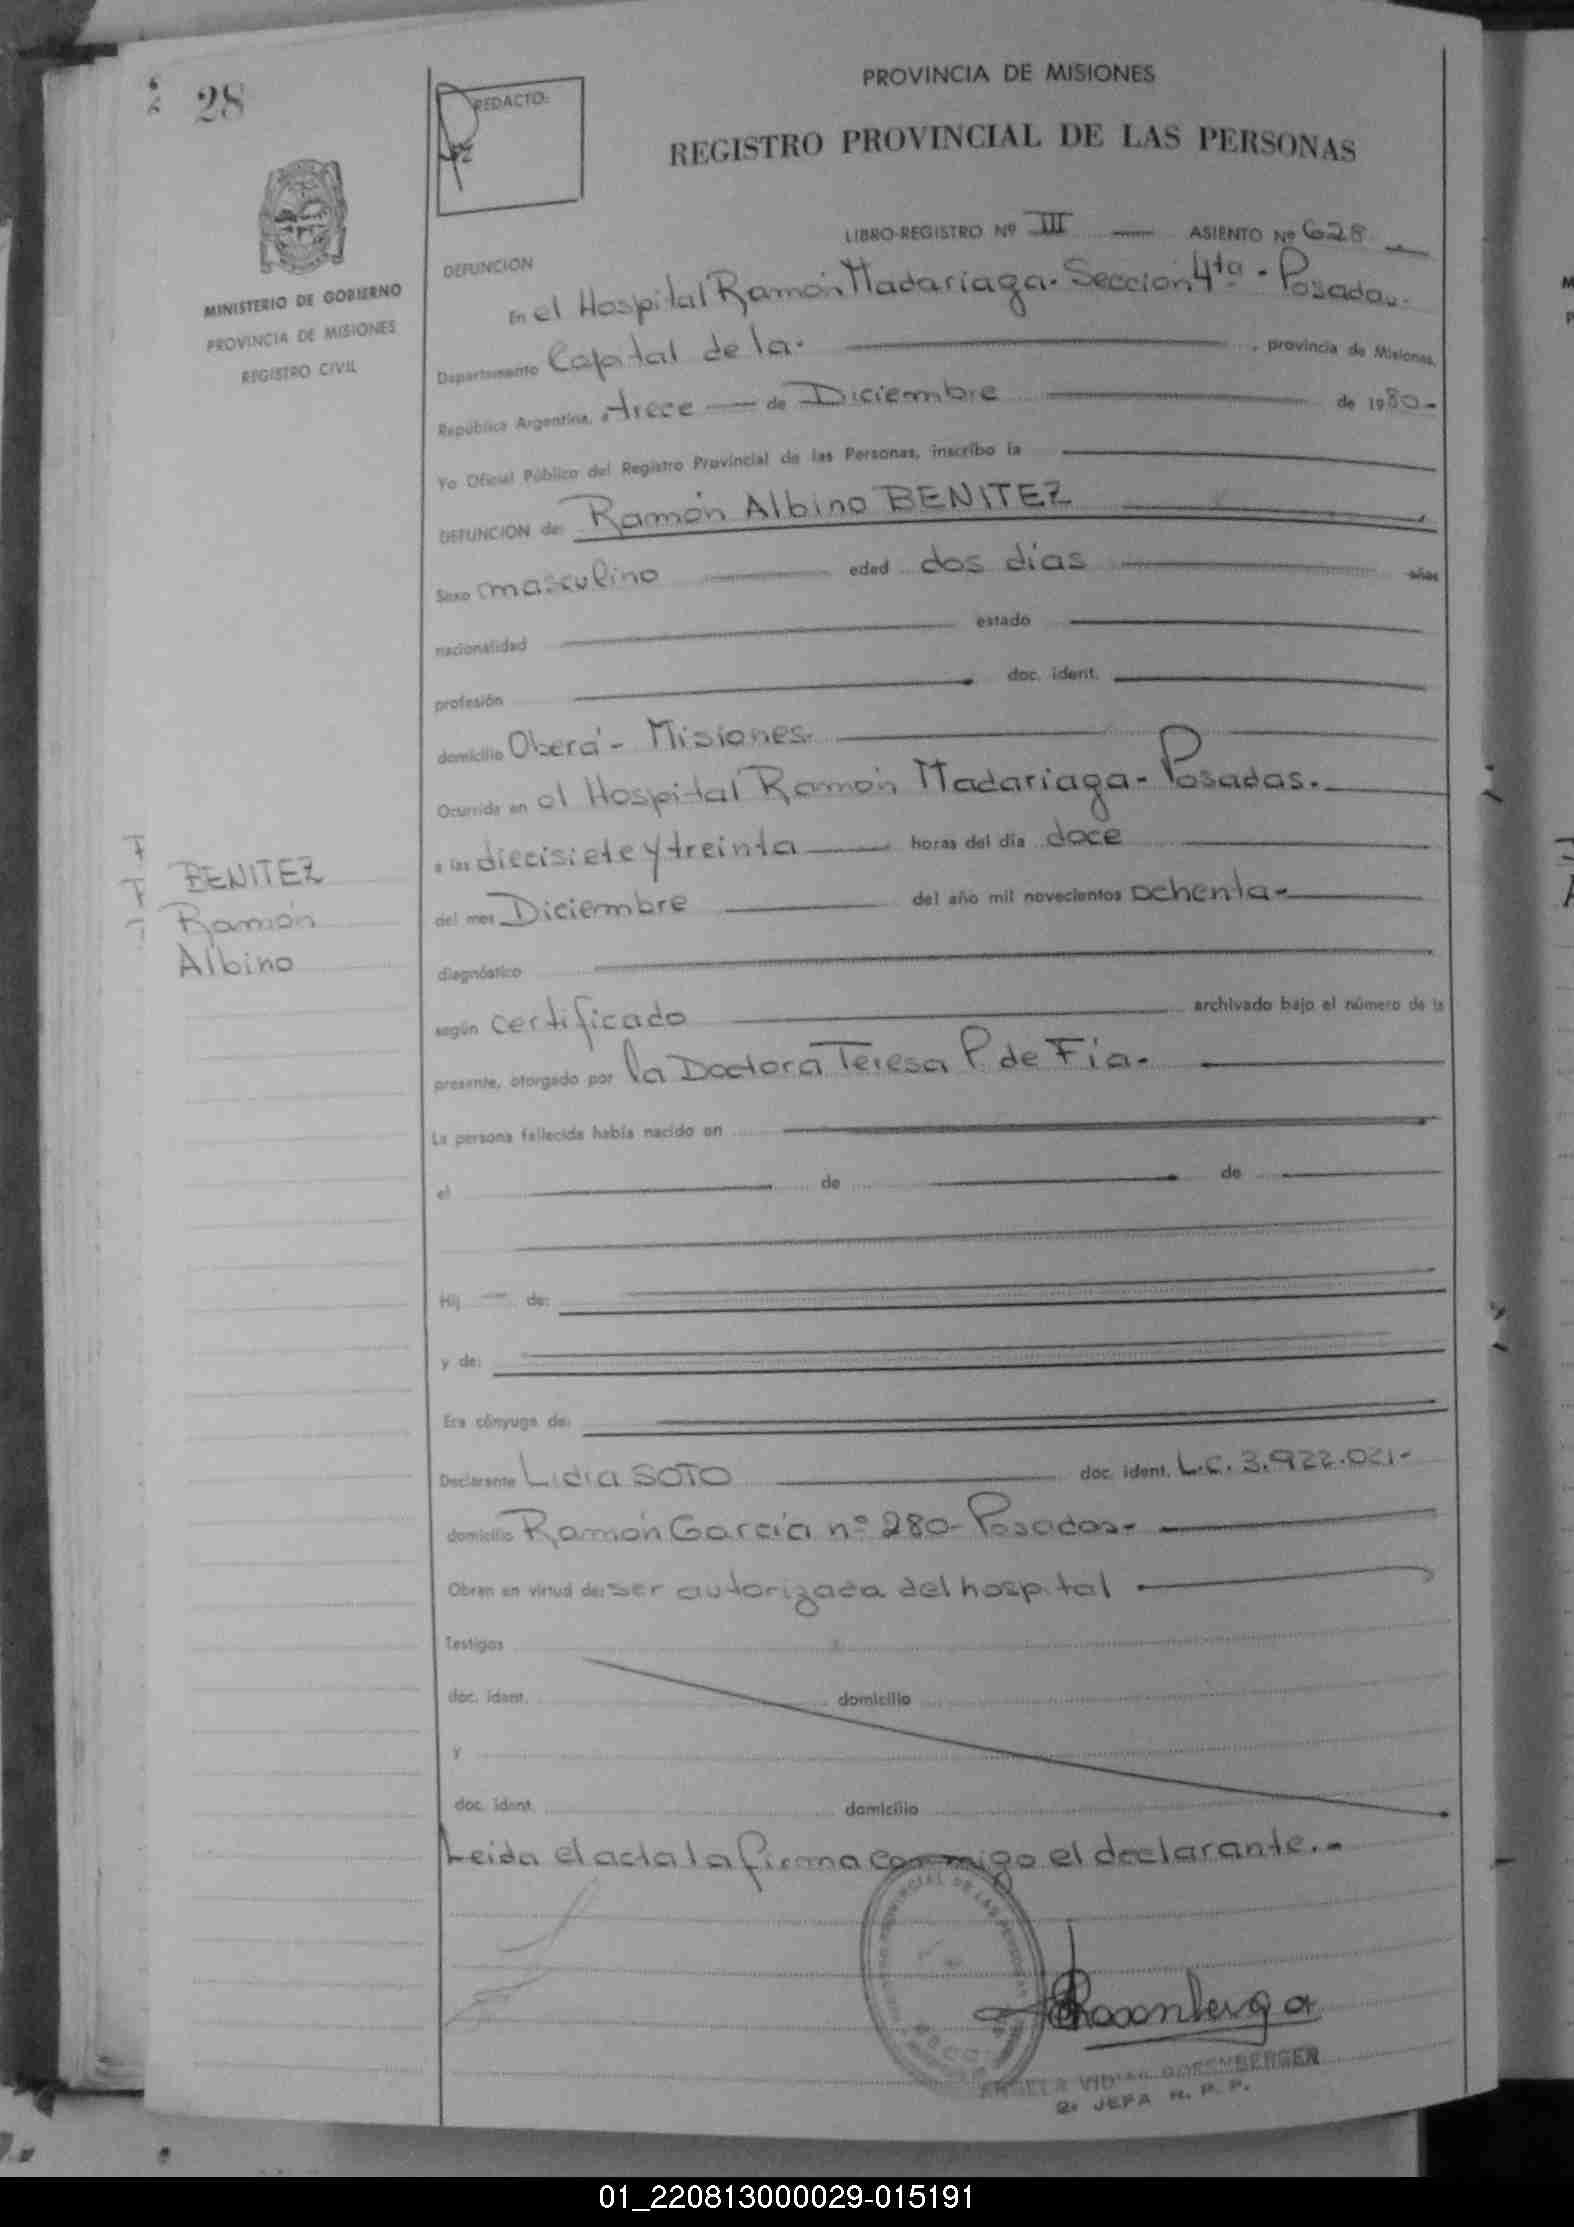 28
REDACTO:
PROVINCIA DE MISIONES
REGISTRO PROVINCIAL DE LAS PERSONAS
MINISTERIO DE GOBIERNO
PROVINCIA DE MISIONES
REGISTRO CIVIL
LIBRO-REGISTRO Nº III ASIENTO Nº 628
DEFUNCION
En el Hospital Ramón Madariaga - Sección 4ta - Posadas.
Departamento Capital de la. , provincia de Misiones,
República Argentina, a trece de Diciembre de 1980-
Yo Oficial Público del Registro Provincial de las Personas, inscribo la
DEFUNCION de: Ramón Albino BENITEZ
Sexo masculino edad dos días años
nacionalidad estado
profesión doc. ident.
domicilio Oberá - Misiones.
Ocurrida en el Hospital Ramón Madariaga - Posadas.
a las diecisiete y treinta horas del día doce
del mes Diciembre del año mil novecientos ochenta-
diagnóstico
según certificado archivado bajo el número de la
presente, otorgado por la Doctora Teresa P. de Fía-
La persona fallecida había nacido en
el de de
Hij de:
y de:
Era cónyuge de:
Declarante Lidia SOTO doc. ident. L.C. 3.922.021-
domicilio Ramón García nº 280 - Posadas-
Obran en virtud de: ser autorizada del hospital
Testigos
doc. ident. domicilio
y
doc. ident. domicilio
Leida el acta la firma conmigo el declarante.-
BENITEZ
Ramón
Albino
PROVINCIAL DE LAS PERSONAS
2º JEFA R. P. P.
01_220813000029-015191